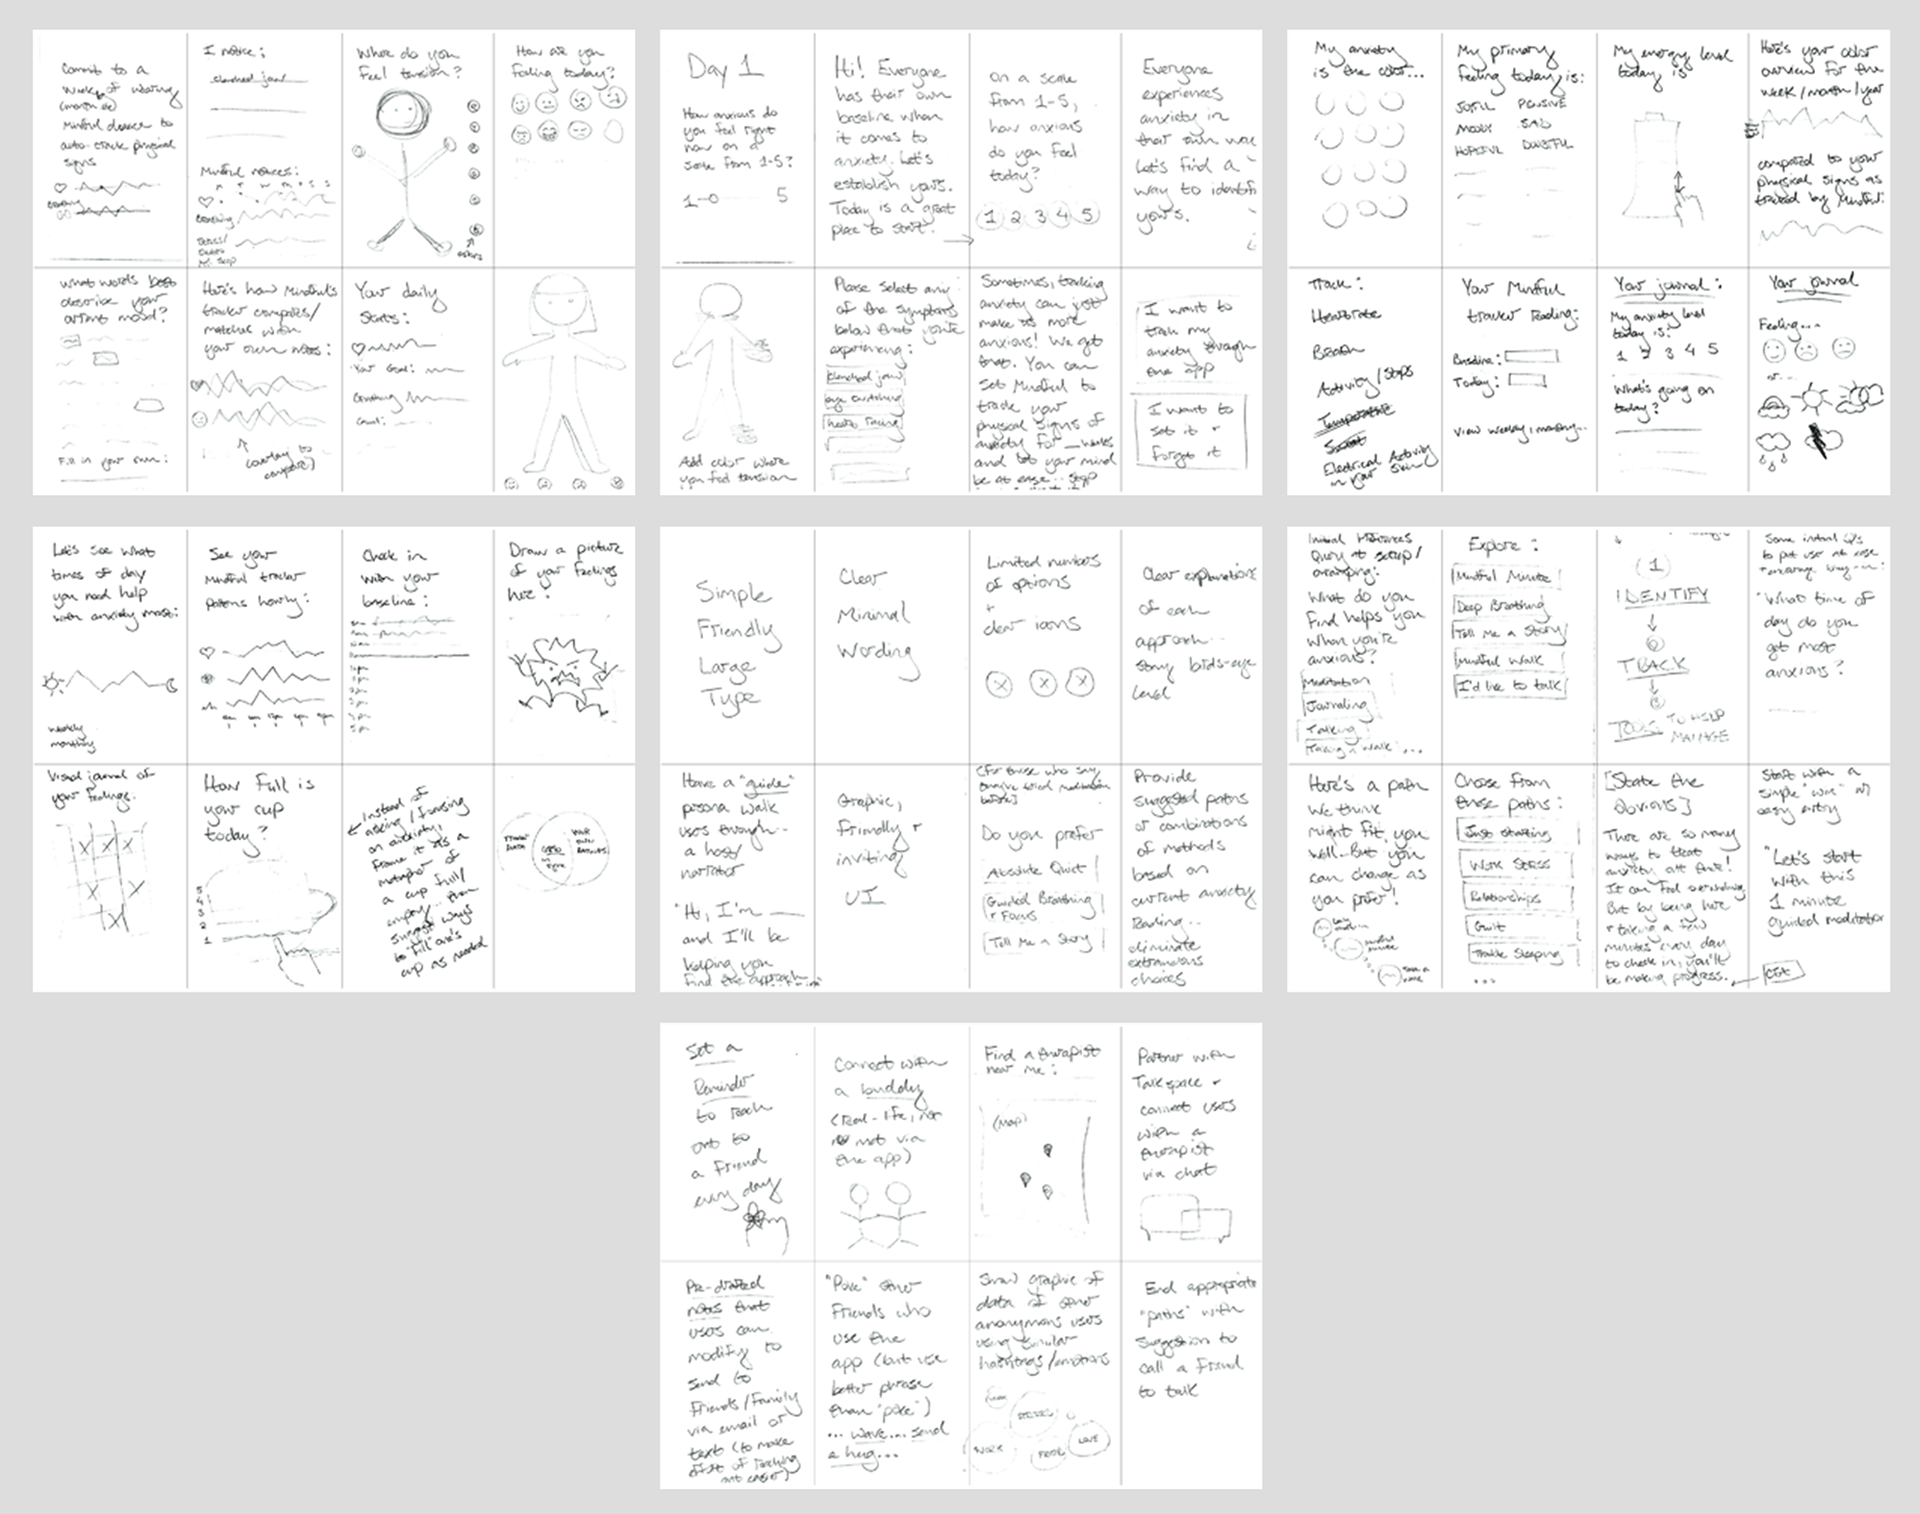 Commit to a
week of wearing
(month etc)
Mindful device to
auto-track physical
signs
I notice:
clenched jaw
Mindful notices:
M T W T F S S
Breathing
Where do you
feel tension?
colors
How are you
feeling today?
What words best
describe your
current mood?
Fill in your own:
Here's how Mindful's
tracker compares/
matches with
your own notes:
(overlay to
compare)
Your daily
Stats:
Your Goal:
Breathing
Goal:
Day 1
How anxious do
you feel right
now on a
scale from 1-5?
1 5
Hi! Everyone
has their own
baseline when
it comes to
anxiety. Let's
establish yours.
Today is a great
place to start.
on a scale
from 1-5,
how anxious
do you feel
today?
1 2 3 4 5
Everyone
experiences
anxiety in
their own way
Let's find a
way to identify
yours.
Add color where
you feel tension
Please select any
of the symptoms
below that you're
experiencing:
clenched jaw
eye twitching
heart racing
Sometimes, tracking
anxiety can just
make us more
anxious! We get
that. You can
set Mindful to
track your
physical signs of
anxiety for __ weeks
and let your mind
be at ease... stop
I want to
train my
anxiety through
the app
I want to
set it +
forget it
My anxiety
is the color...
My primary
feeling today is:
JOYFUL PENSIVE
MOODY SAD
HOPEFUL DOUBTFUL
My energy level
today is
Here's your color
overview for the
week/month/year
compared to your
physical signs as
tracked by Mindful:
Track:
Heartrate
Breath
Activity/Steps
Temperature
Sweat
Electrical Activity
in your skin
Your Mindful
tracker reading:
Baseline:
Today:
View weekly, monthly...
Your journal:
My anxiety level
today is:
1 2 3 4 5
What's going on
today?
Your journal
Feeling...
or...
Let's see what
times of day
you need help
with anxiety most:
weekly
monthly
See your
Mindful tracker
patterns hourly:
Check in
with your
baseline:
Draw a picture
of your feelings
here:
Visual journal of
your feelings.
How full is
your cup
today?
5
4
3
2
1
Instead of
asking/focusing
on anxiety,
frame it as a
metaphor of
a cup full/
empty... then
suggest ways
to "fill" one's
cup as needed
Simple
Friendly
Large
Type
Clear
Minimal
Wording
Limited numbers
of options
+
clear icons
Clear explanations
of each
approach...
stay birds-eye
level
Have a "guide"
persona walk
users through...
a host/
narrator
"Hi, I'm ___
and I'll be
helping you
find the approach
Graphic,
friendly +
inviting
UI
(For those who say
they've tried meditation
before)
Do you prefer
Absolute Quiet
Guided Breathing
+ Focus
Tell Me a Story
Provide
suggested paths
or combinations
of methods
based on
current anxiety
reading...
eliminate
extraneous
choices
Initial
Query at setup/
What do you
find helps you
when you're
anxious?
Meditation
Journaling
Talking
Taking a walk ...
Explore:
Mindful Minute
Deep Breathing
Tell Me a Story
Mindful Walk
I'd like to talk
1
IDENTIFY
2
TRACK
3
TOOLS TO HELP
MANAGE
Some initial Q's
to put user at ease
"What time of
day do you
get most
anxious?
Here's a path
we think
might fit you
well—But you
can change as
you prefer!
Choose from
these paths:
Just starting
Work Stress
Relationships
Guilt
Trouble Sleeping
...
[State the
obvious]
There are so many
ways to treat
anxiety out there!
It can feel overwhelming
But by being here
+ taking a few
minutes every day
to check in, you'll
be making progress.
Start with a
simple "win" w/
easy entry
"Let's start
with this
1 minute
guided meditation
Set a
Reminder
to reach
out to
a friend
every day
Connect with
a buddy
(real-life, not
via
the app)
Find a therapist
near me:
(Map)
Partner with
Talkspace +
connect users
with a
therapist
via chat
Pre-drafted
notes that
users can
modify to
send to
friends/family
via email or
text (to make
effort of reaching
out easier)
"Poke" other
friends who
use the
app (but use
better phrase
than "poke")
... wave... send
a hug...
Show graphic of
data of other
anonymous users
using similar
hashtags/emotions
STRESS
WORK
LOVE
End appropriate
"paths" with
suggestion to
call a friend
to talk